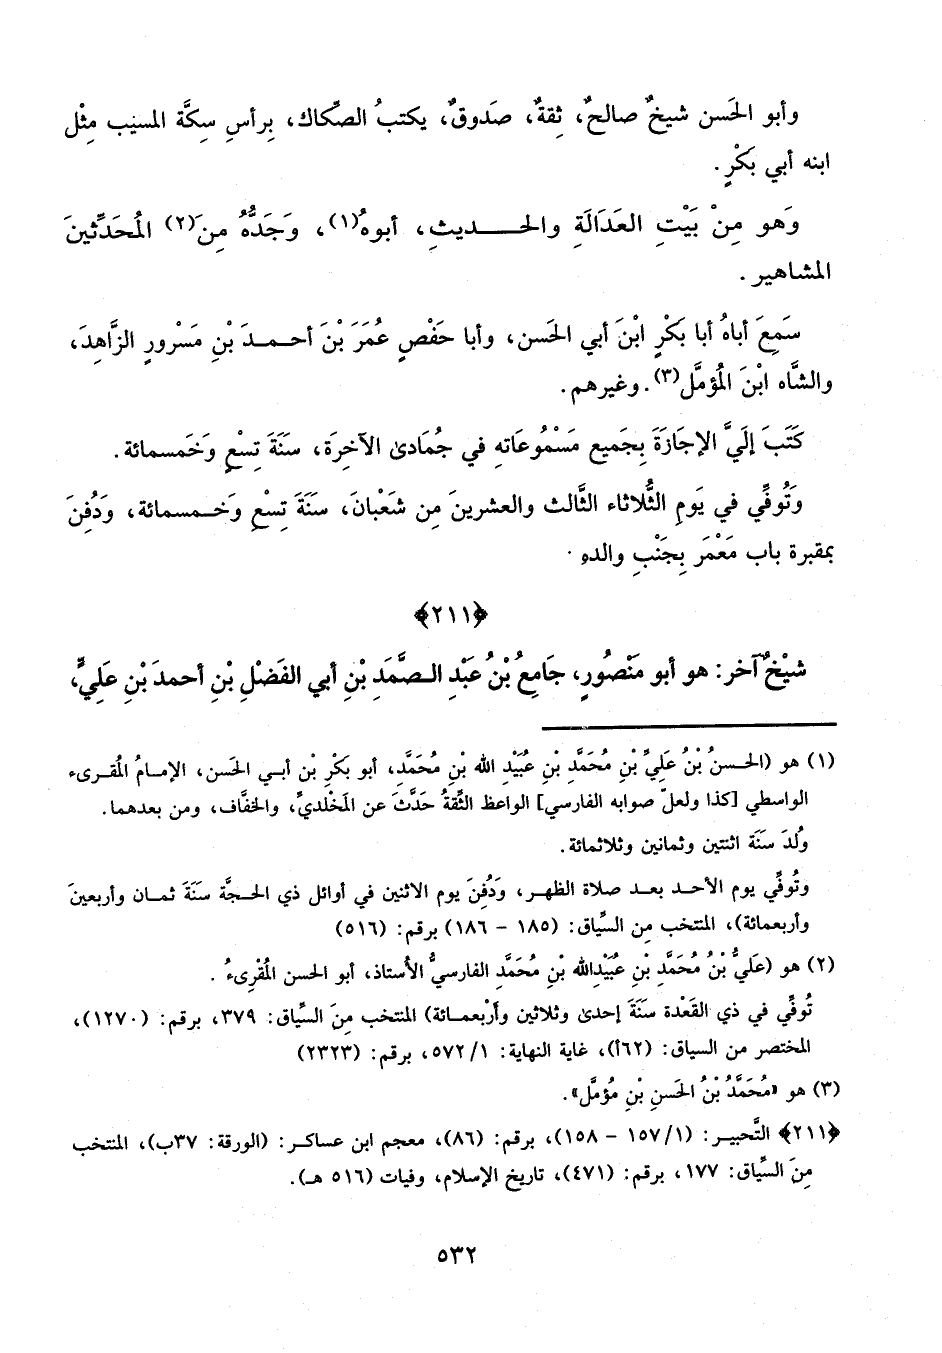 وأبو الحَسن شيخٌ صالحٌ، ثِقةٌ، صَدوقٌ، يكتبُ الصِّكاك، بِرأسِ سِكَّة المسيّب مِثْل
ابنه أبي بَكْرٍ.
وَهو مِنْ بَيْتِ العَدَالَةِ والحـــديثِ، أبوهُ(١)، وَجَدُّهُ مِنَ(٢) المُحَدِّثينَ
المشاهير.
سَمِعَ أباهُ أبا بَكْرٍ ابْنَ أبي الحَسن، وأبا حَفْصٍ عُمَرَ بْنَ أحـمـدَ بْنِ مَسْرورٍ الزَّاهِدَ،
والشَّاه ابْنَ المُؤمَّل(٣). وغيرهم.
كَتَبَ إلَيَّ الإجَازَةَ بِجَميع مَسْمُوعَاتهِ في جُمَادىٰ الآخِرَة، سَنَةَ تِسْعٍ وَخَمسمائة.
وَتُوفِّي في يَومِ الثُّلاثاء الثَّالث والعشرينَ مِن شَعْبانَ، سَنَةَ تِسْعٍ وَخـمسمائة، وَدُفِنَ
بمقبرة باب مَعْمَر بِجَنْبِ والده.
﴿٢١١﴾
شيْخٌ آخر: هو أبو مَنْصُورٍ، جَامِعُ بْنُ عَبْدِ الـصَّمَدِ بْنِ أبي الفَضْلِ بْنِ أحمدَ بْنِ عَلِيٍّ،
(١) هو (الحـسنُ بْنُ عَلِيِّ بْنِ مُحَمَّدِ بْنِ عُبَيْدِ الله بْنِ مُحَمَّدٍ، أبو بَكْرِ بْن أبـي الحَسن، الإمـامُ المُقرىء
الواسطي [كذا ولعلّ صوابه الفارسي] الواعظ الثِّقةُ حَدَّثَ عن المَخْلديِّ، والخفَّاف، ومن بعدهما.
وُلدَ سَنَة اثنتين وثمانين وثلاثمائة.
وتُوفِّي يوم الأحـد بعـد صلاة الظهـر، وَدُفِنَ يوم الاثنين في أوائل ذي الحـجَّة سَنَةَ ثمـان وأربعينَ
وأربعمائة)، المنتخب مِن السِّياق: (١٨٥ - ١٨٦) برقم: (٥١٦)
(٢) هو (عَليُّ بْنُ مُحَمَّدِ بْنِ عُبَيْدِالله بْنِ مُحَمَّدٍ الفارسيُّ الأُستاذ، أبو الحسن المُقْرىءُ.
تُوفِّي في ذي القَعْدة سنَةَ إحدىٰ وثلاثين وأرْبعمـائة) المنتخب مِنَ السِّياق: ٣٧٩، برقم: (١٢٧٠)،
المختصر من السياق: (٦٢أ)، غاية النهاية: ١/ ٥٧٢، برقم: (٢٣٢٣)
(٣) هو «مُحَمَّدُ بْنُ الحَسنِ بْنِ مُؤمَّل».
﴿٢١١﴾ التَّحبيـر: (١/ ١٥٧ - ١٥٨)، برقم: (٨٦)، معجم ابن عساكـر: (الورقة: ٣٧ب)، المنتخب
مِنَ السِّياق: ١٧٧، برقم: (٤٧١)، تاريخ الإسلام، وفيات (٥١٦ هـ).
٥٣٢